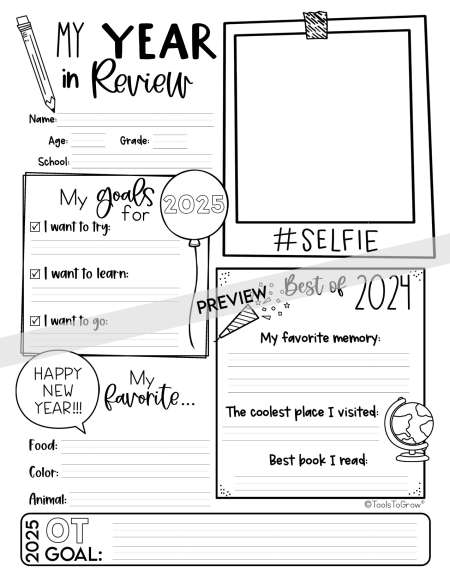 MY YEAR
in Review
Name:
Age: Grade:
School:
#SELFIE
My goals
for 2025
I want to try:
I want to learn:
I want to go:
PREVIEW
Best of 2024
My favorite memory:
The coolest place I visited:
Best book I read:
HAPPY
NEW
YEAR!!!
My
favorite...
Food:
Color:
Animal:
©ToolsToGrow®
2025 OT
GOAL: